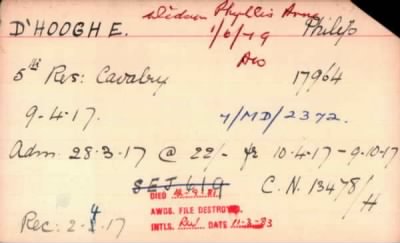 widow Phyllis Anne
D'HOOGHE. 1/6/19 Philip
5th Res: Cavalry 17964
9-4-17. 7/MD/2372.
Adm 28-3-17 @ 22/- 10-4-17 - 9-10-17
SEJ 619 C.N. 13478/H
DIED
AWDS. FILE DESTROYED.
INTLS. DATE 11-3-83
Rec: 2-4-17